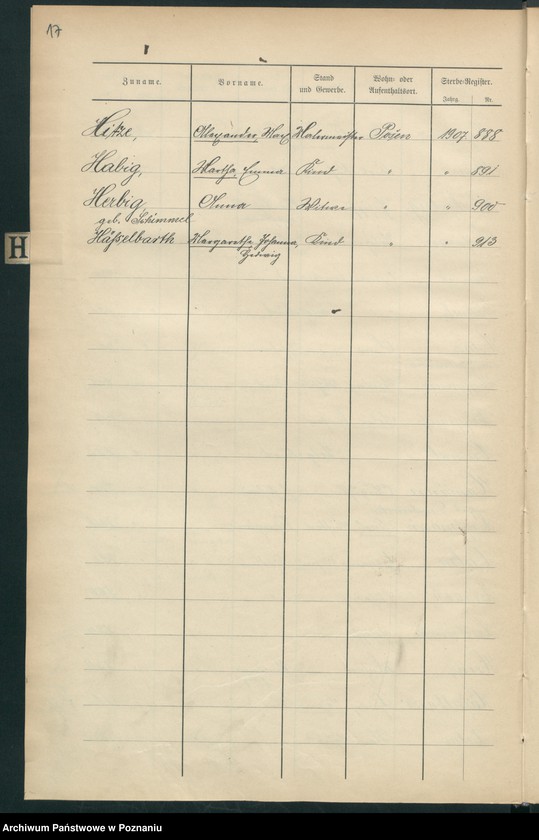 17
Zuname. Vorname. Stand und Gewerbe. Wohn- oder Aufenthaltsort. Sterbe-Register.
Jahrg. Nr.
Hitze, Alexander, Max Malermeister Posen 1907 888
Habig, Martha, Emma Kind " " 891
Herbig, Anna Witwe " " 900
geb. Schimmel
Häßelbarth Margarethe, Johanna, Kind " " 913
Hedwig
H
Archiwum Państwowe w Poznaniu